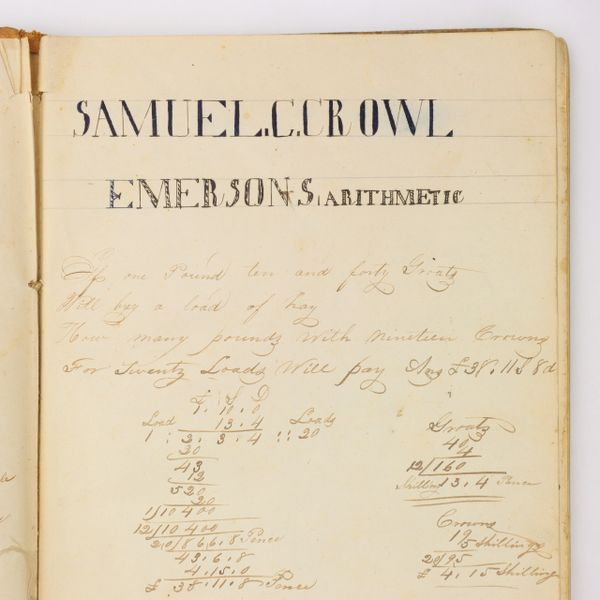 SAMUEL.C.CROWL
EMERSON,S, ARITHMETIC
If one Pound ten and forty Groats
Will buy a load of hay
How many pounds with nineteen Crowns
For Twenty Loads Will pay Ans £38.11S 8d
£ S D
1.10.0
Load 13.4 Loads
1 : 2.3.4 :: 20
20
43
12
520
20
1)10400
12)10400
20)866.8 Pence
43.6.8
4.15.0
£ 38.11.8 Pence
Groats
40
4
12)160
Shillings 13.4 Pence
Crowns
19
5 Shillings
20)95
£ 4.15 Shilling